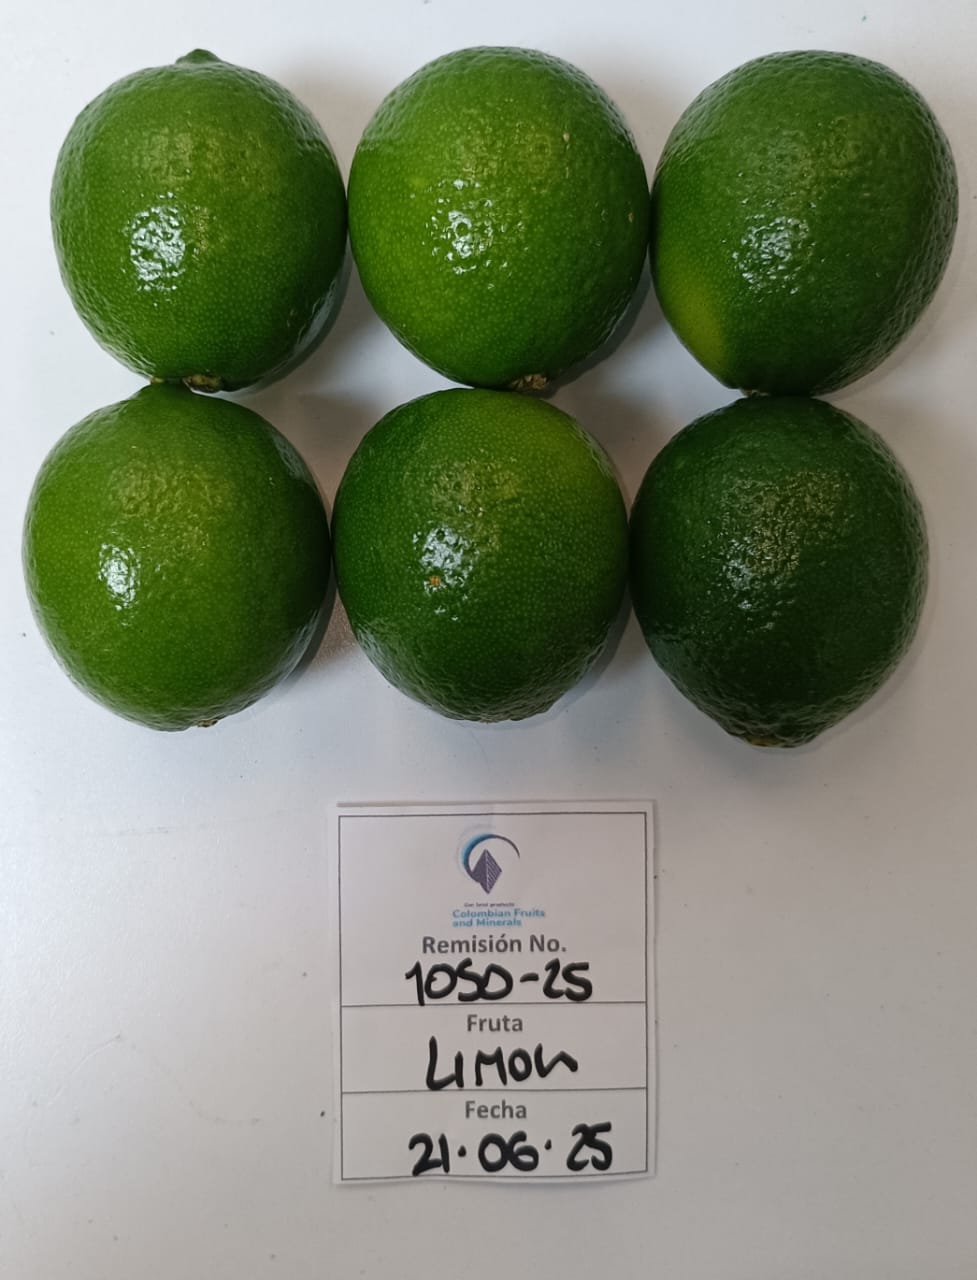 Get best products
Colombian Fruits
and Minerals
Remisión No.
1050-25
Fruta
LIMON
Fecha
21.06.25